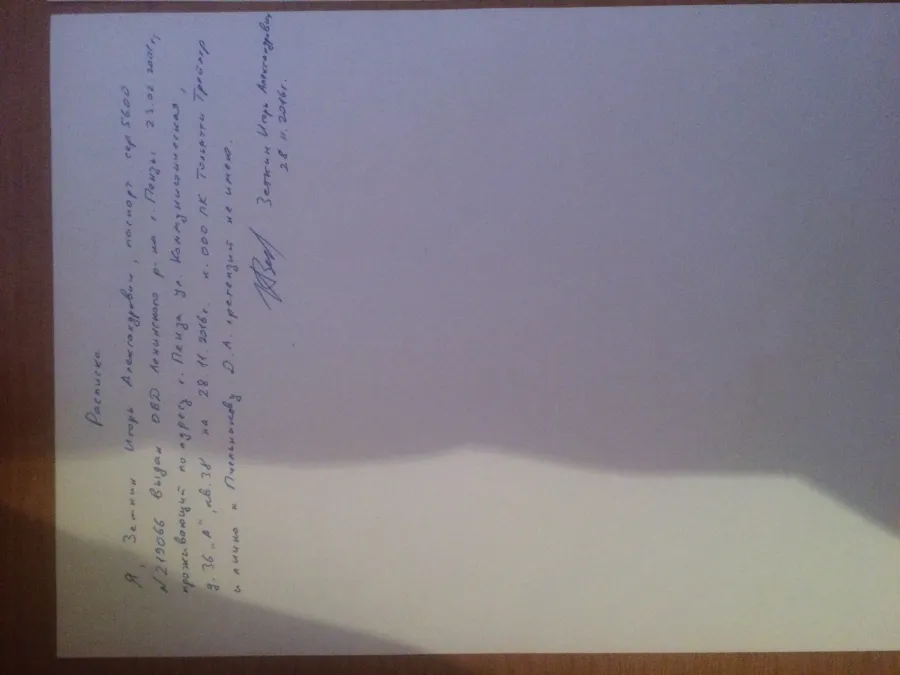 Расписка
Я, Зеткин Игорь Александрович, паспорт сер 5600
№ 219066 выдан ОВД Ленинского р-на г. Пензы 23.02.2001г,
проживающий по адресу г. Пенза ул. Коммунистическая,
д. 36 „А", кв. 38 на 28.11.2016г. к ООО ПК Тольятти Трейлер
и лично к Пчельникову Д.А. претензий не имею.
Зеткин Игорь Александрович
28.11.2016г.